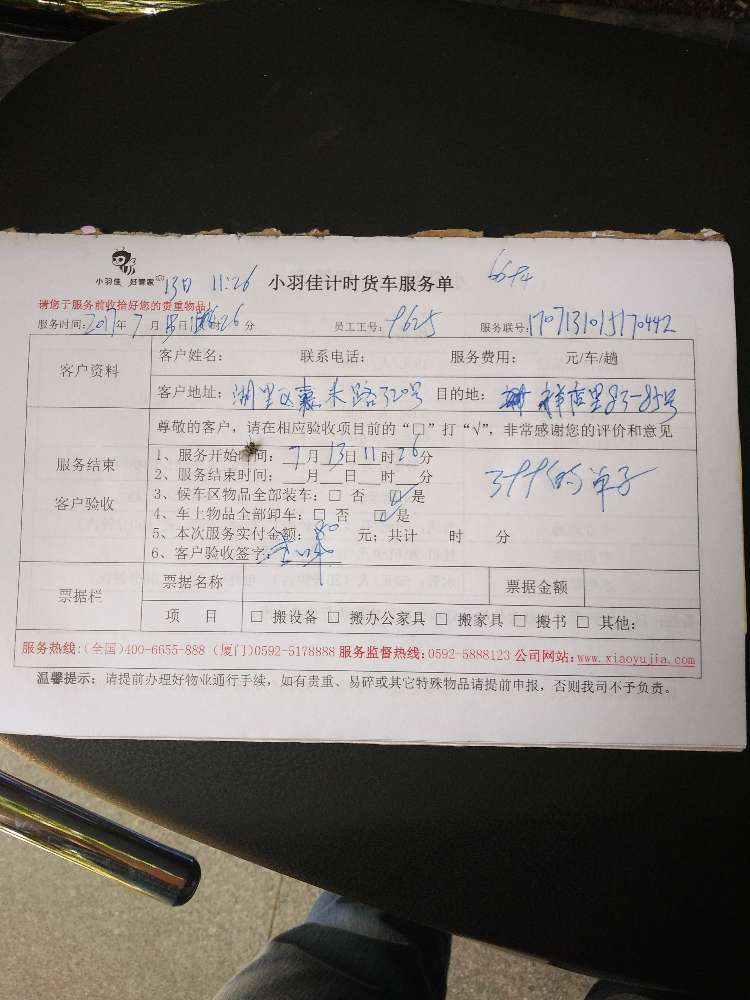 小羽佳 好管家
13日 11:26
小羽佳计时货车服务单
请您于服务前收拾好您的贵重物品!
服务时间:2017年7月13日 时26分 员工工号:9625 服务联号:1707131015170442
客户资料
客户姓名: 联系电话: 服务费用: 元/车/趟
客户地址:湖里区 路320号 目的地: 祥店里83-85号
服务结束
客户验收
尊敬的客户,请在相应验收项目前的“□”打“√”,非常感谢您的评价和意见
1、服务开始时间:7月13日11时26分
2、服务结束时间: 月 日 时 分
3、候车区物品全部装车:□ 否 □ 是
4、车上物品全部卸车:□ 否 □ 是
5、本次服务实付金额:80元;共计 时 分
6、客户验收签字:
的单子
票据栏
票据名称 票据金额
项 目 □ 搬设备 □ 搬办公家具 □ 搬家具 □ 搬书 □ 其他:
服务热线:(全国)400-6655-888 (厦门)0592-5178888 服务监督热线:0592-5888123 公司网站:www.xiaoyujia.com
温馨提示:请提前办理好物业通行手续,如有贵重、易碎或其它特殊物品请提前申报,否则我司不予负责。